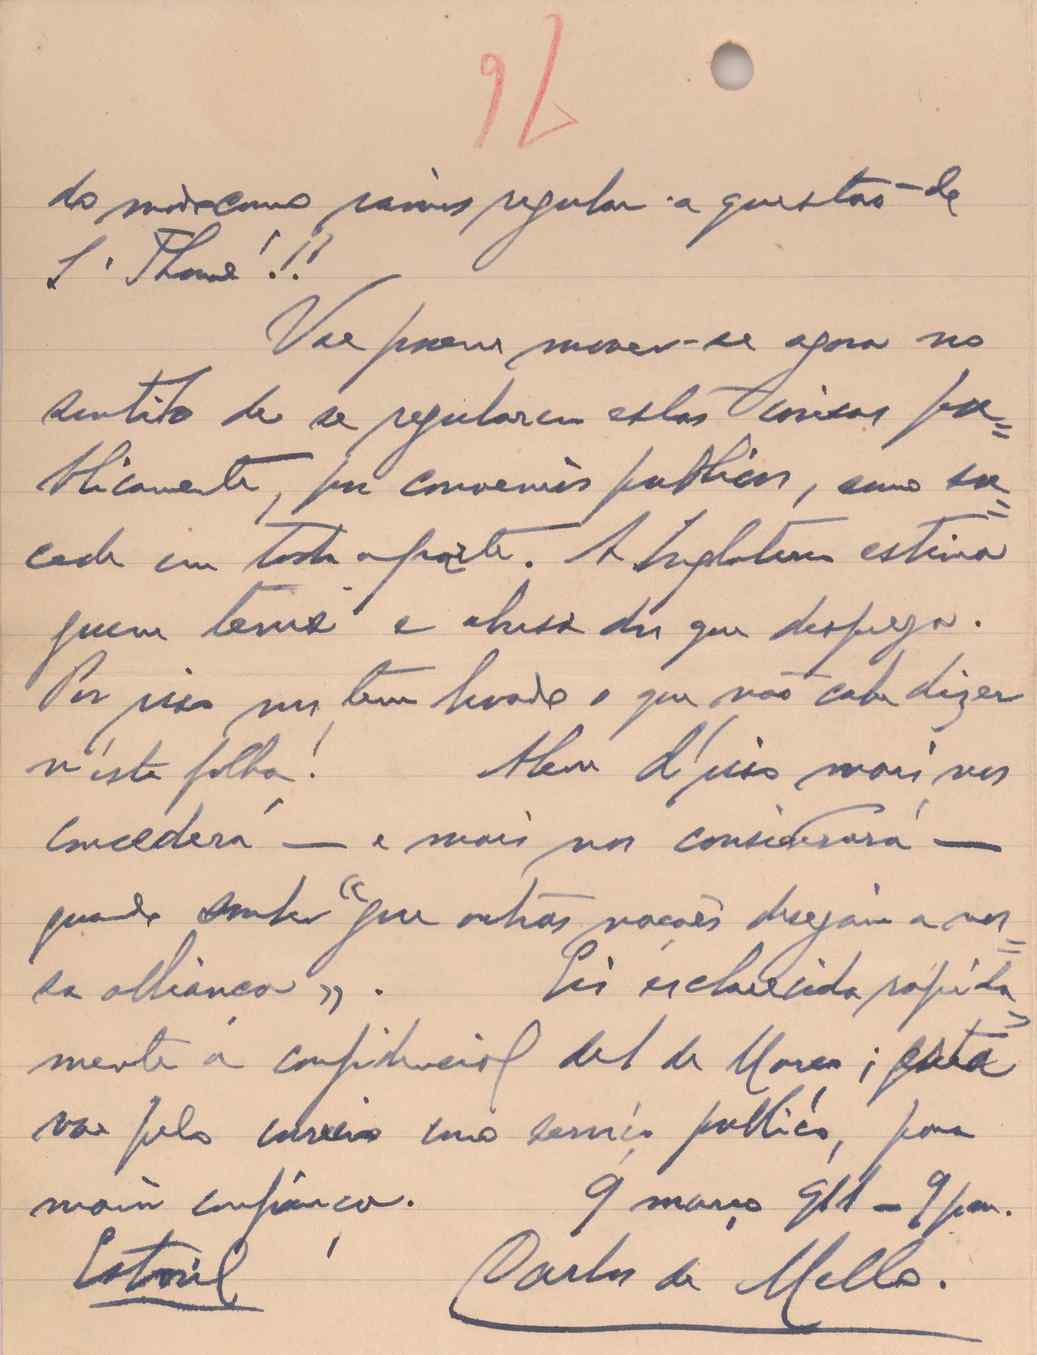 do modo como vamos regular a questão de
S. Thomé!!!
Vae passar mover-se agora no
sentido de se regularem estas coisas pu=
blicamente, por convenios publicos, como su=
cede em toda a parte. A Inglaterra estima
quem teme e abusa dos que despreza.
Por isso nos tem levado o que não cabe dizer
n'esta folha! Alem d'isso mais nos
concederá — e mais nos considerará —
quando souber "que outras nações desejam a nos=
sa alliança". Eis esclarecida rapida=
mente a confidencial de 1 de Março; esta
vae pelo correio como serviço publico, para
maior confiança. 9 março 911 — 9 pm.
Estoril Carlos de Mello.